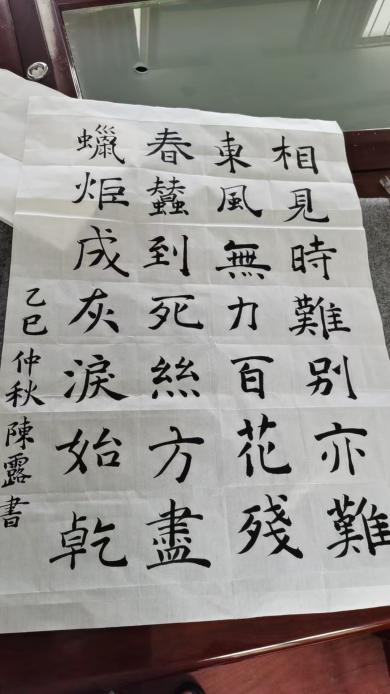 相見時難別亦難
東風無力百花殘
春蠶到死絲方盡
蠟炬成灰淚始乾
乙巳仲秋陳露書